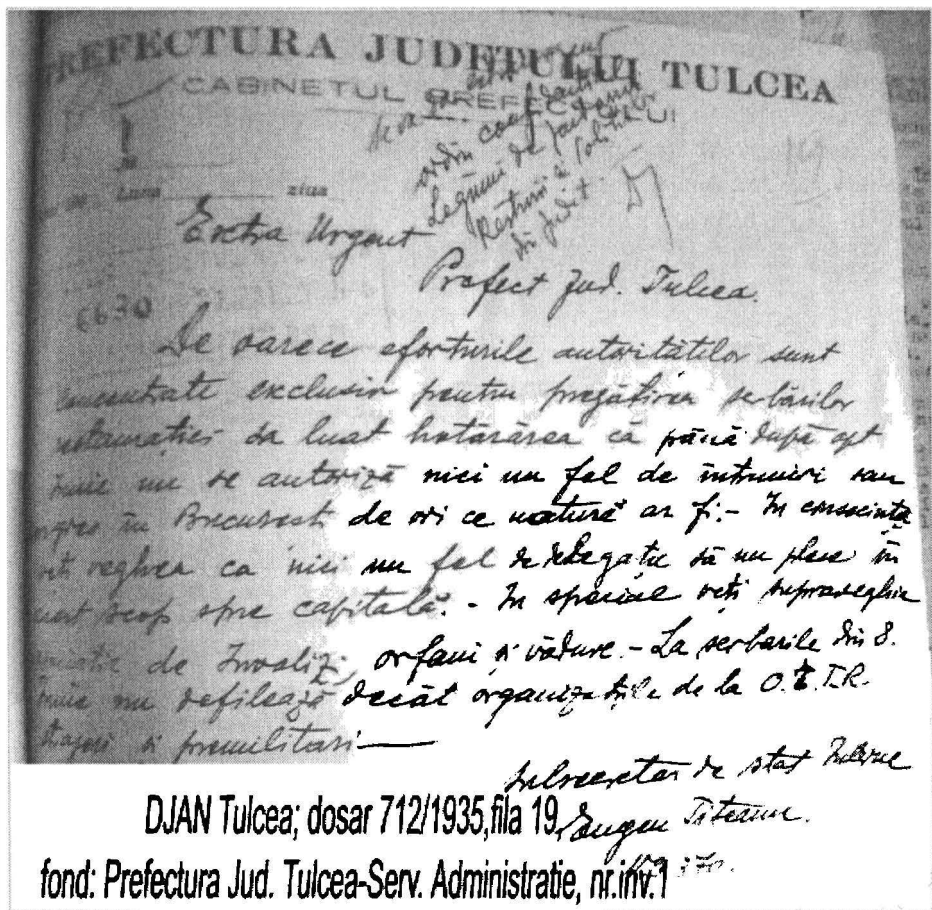 PREFECTURA JUDEȚULUI TULCEA
CABINETUL PREFECTULUI
ordin
Legiuni de jandarmi
Luna ziua
Extra Urgent
Prefect Jud. Tulcea.
6630
De oarece eforturile autorităților sunt
concentrate exclusiv pentru pregătirea serbărilor
hotărârea că până după opt
iunie nu se autoriză nici un fel de întruniri sau
în București de ori ce natură ar fi. - In consecință
veghea ca nici un fel de delegație să nu plece în
scop spre capitală. - In special veți supraveghia
de Invalizi, orfani și văduve. - La serbările din 8.
iunie nu defilează decât organizațiile de la O.E.T.R.
și premilitari —
Subsecretar de stat Interne
Eugen Titeanu.
DJAN Tulcea; dosar 712/1935,fila 19,
fond: Prefectura Jud. Tulcea-Serv. Administratie, nr.inv.1